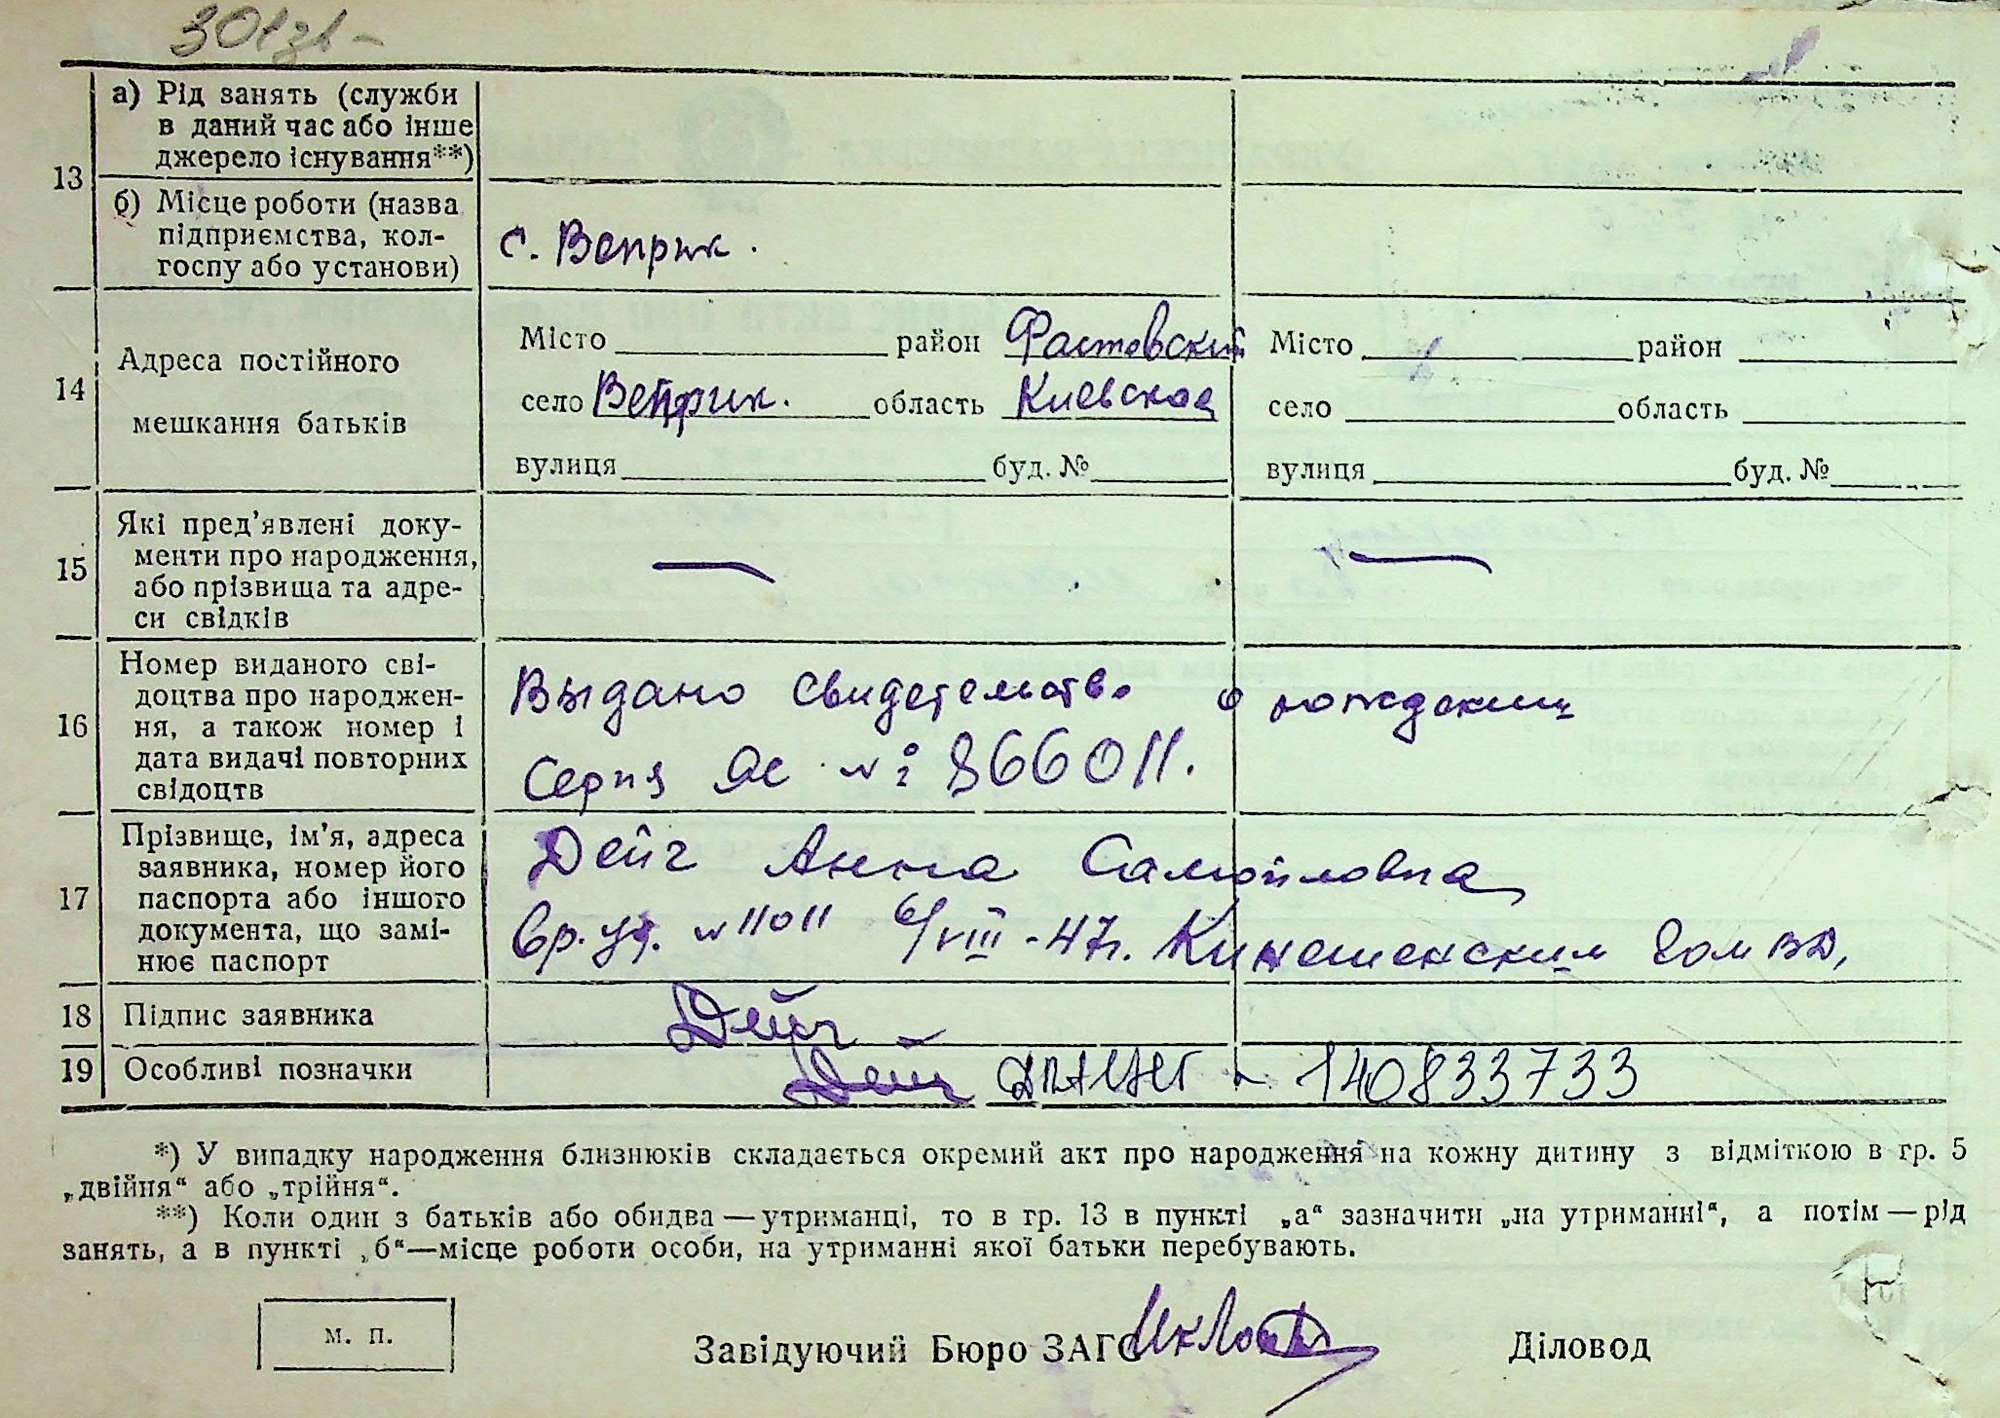 13
а) Рід занять (служби
в даний час або інше
джерело існування**)
б) Місце роботи (назва
підприємства, кол-
госпу або установи)
с. Веприк.
14
Адреса постійного
мешкання батьків
Місто район Фастовский
село Веприк. область Киевская
вулиця буд. №
Місто район
село область
вулиця буд. №
15
Які пред'явлені доку-
менти про народження,
або прізвища та адре-
си свідків
—
—
16
Номер виданого сві-
доцтва про народжен-
ня, а також номер і
дата видачі повторних
свідоцтв
Выдано свидетельство о рождении
Серия ЯС № 866011.
17
Прізвище, ім'я, адреса
заявника, номер його
паспорта або іншого
документа, що замі-
нює паспорт
Дейч Анна Самойловна
Вр. уд. № 11011 6/VIII-47г. Кинешенским ГОМВД,
18
Підпис заявника
Дейч
19
Особливі позначки
Дейч 140833733
*) У випадку народження близнюків складається окремий акт про народження на кожну дитину з відміткою в гр. 5
„двійня“ або „трійня“.
**) Коли один з батьків або обидва — утриманці, то в гр. 13 в пункті „а“ зазначити „на утриманні“, а потім — рід
занять, а в пункті „б“—місце роботи особи, на утриманні якої батьки перебувають.
м. п.
Завідуючий Бюро ЗАГС
Діловод